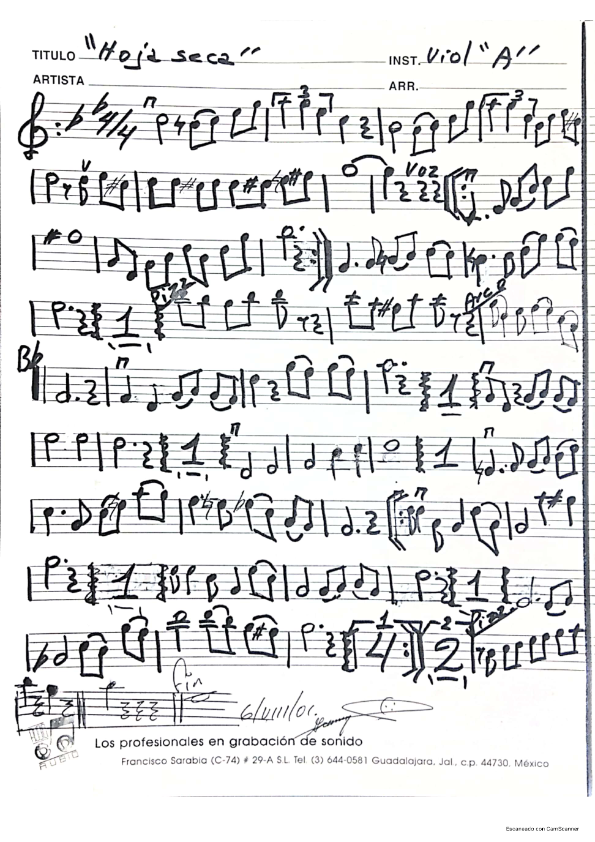 TITULO "Hoja seca" INST. Viol "A"
ARTISTA ARR.
4/4 3 3
VOZ
1 Pizz Arco
Bb
1
1 1
1 1
1 2
4 2 Pizz
fin
6/VIII/01.
AUDIO
Los profesionales en grabación de sonido
Francisco Sarabia (C-74) # 29-A S.L. Tel. (3) 644-0581 Guadalajara, Jal., c.p. 44730. México
Escaneado con CamScanner